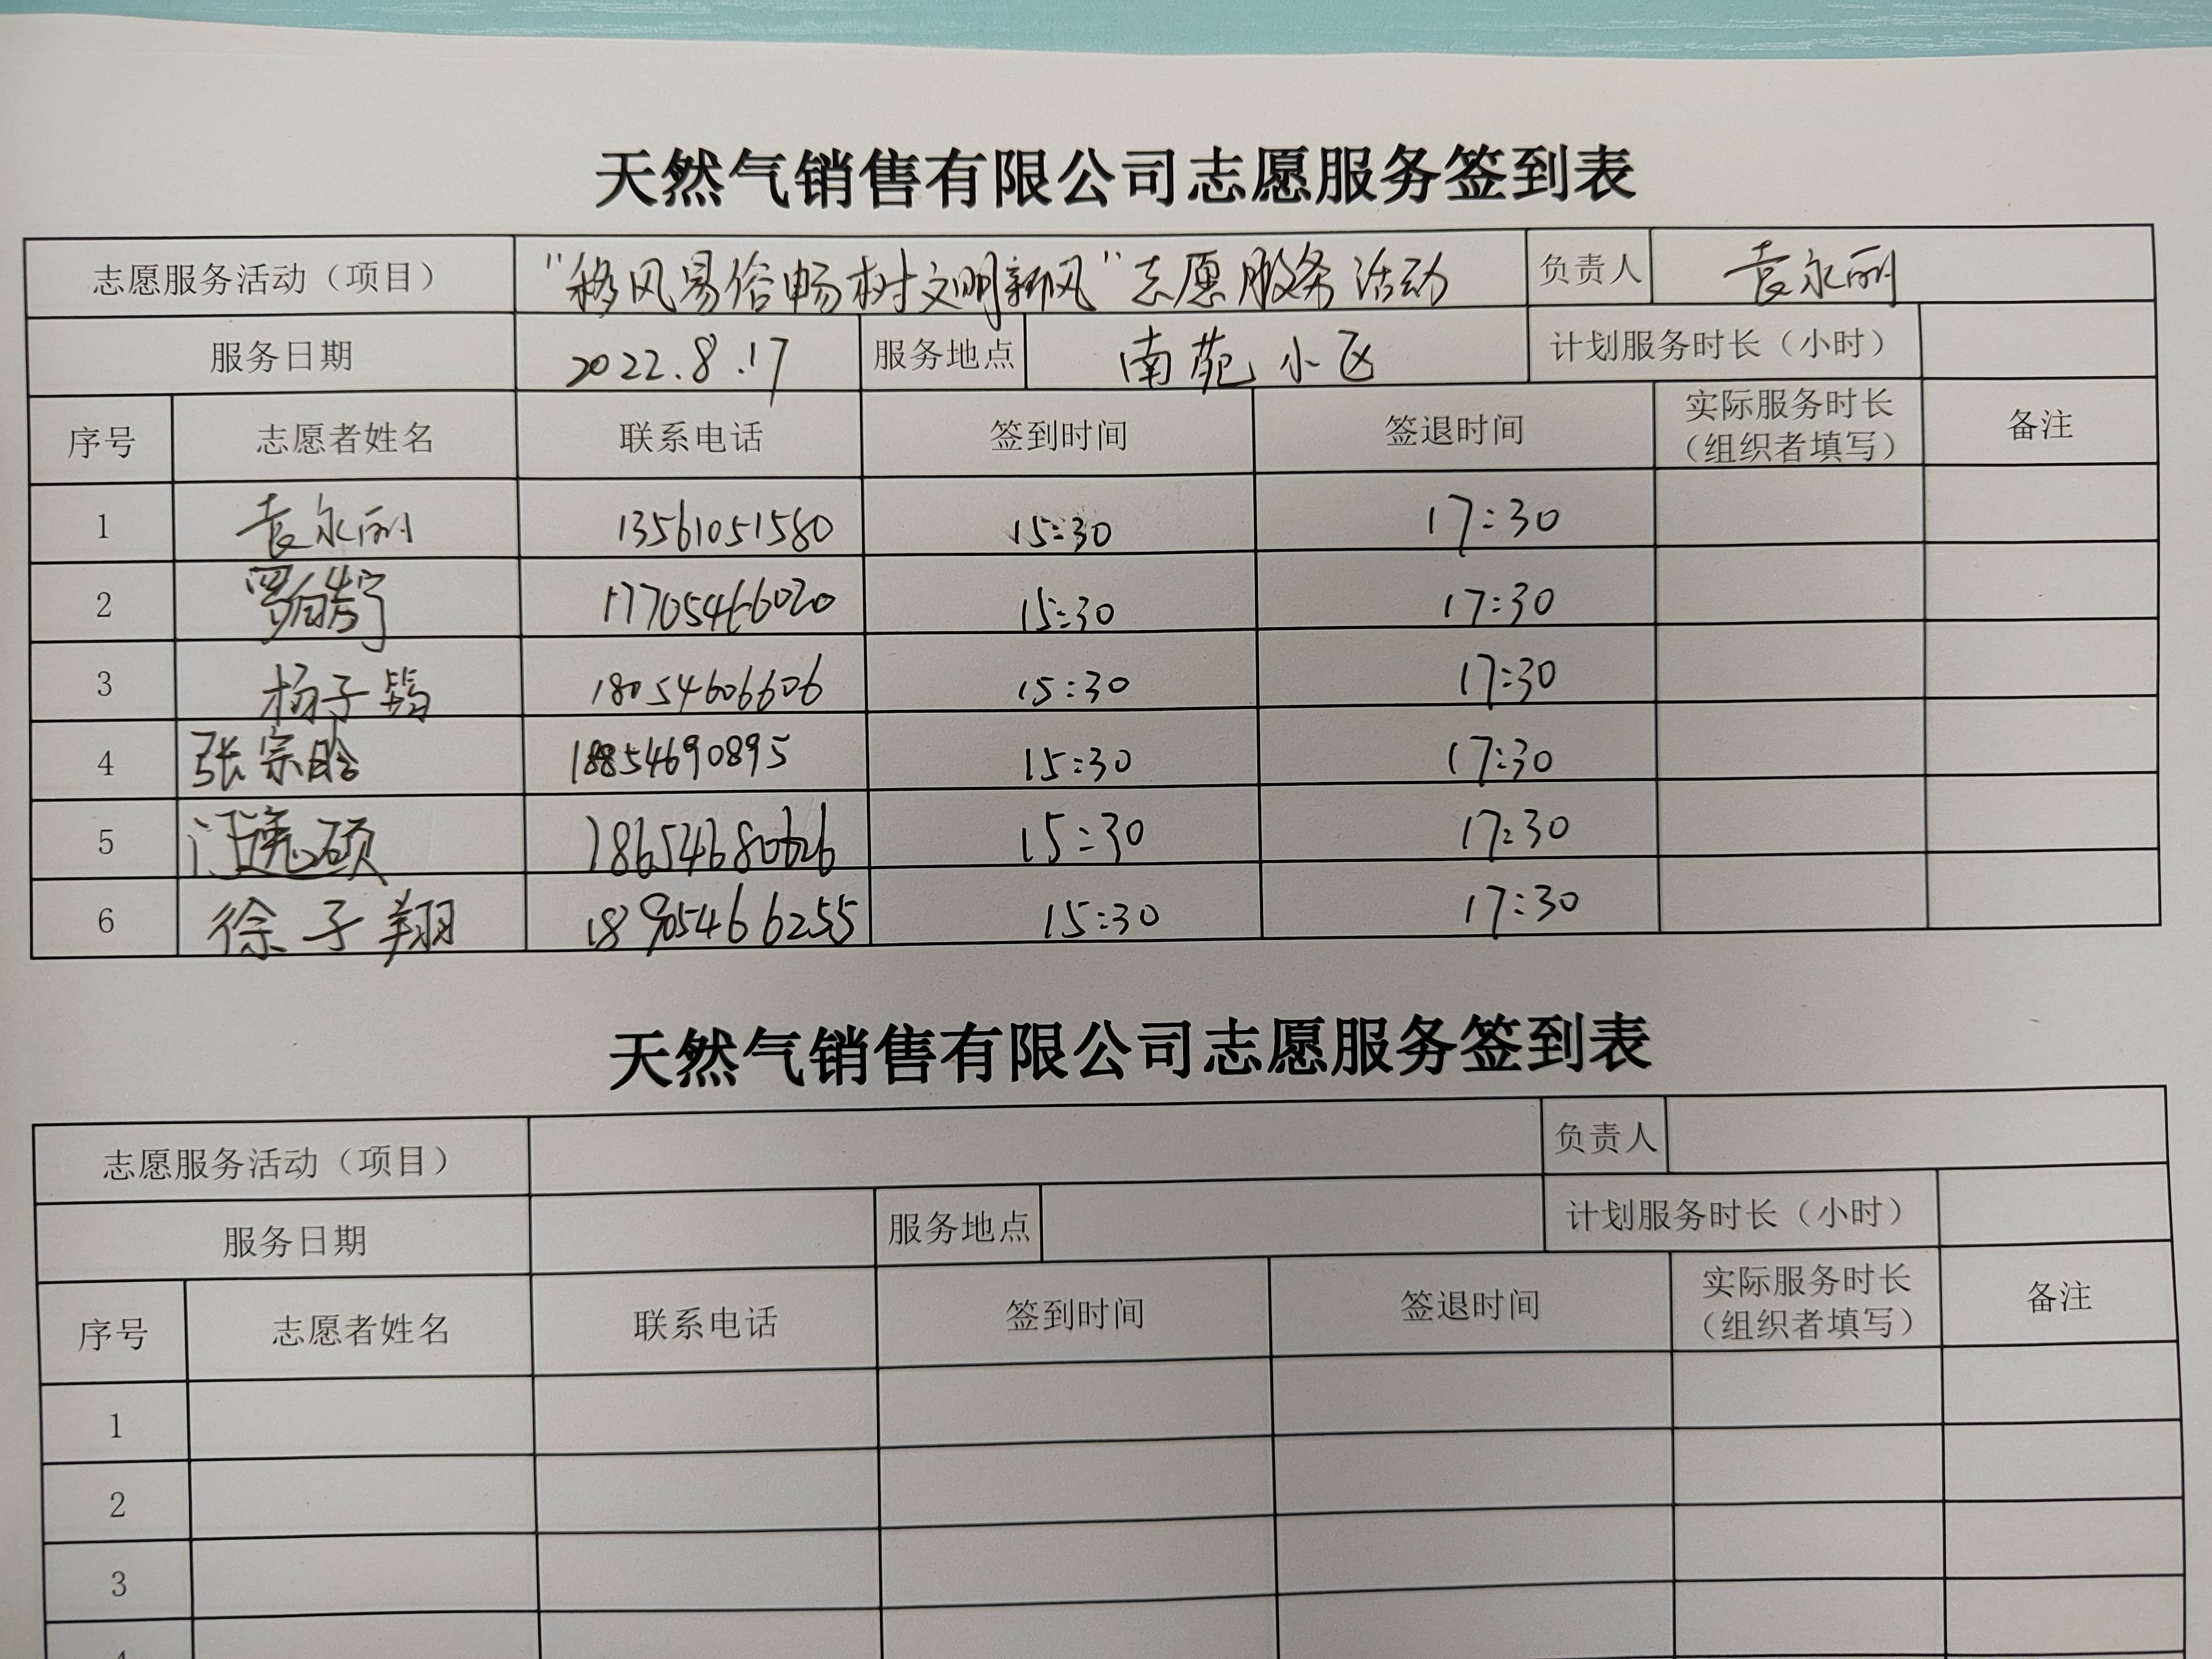 天然气销售有限公司志愿服务签到表
志愿服务活动（项目） "移风易俗畅树文明新风"志愿服务活动 负责人 袁永丽
服务日期 2022.8.17 服务地点 南苑小区 计划服务时长（小时）
序号 志愿者姓名 联系电话 签到时间 签退时间 实际服务时长（组织者填写） 备注
1 袁永丽 13561051580 15:30 17:30
2 17705466020 15:30 17:30
3 杨子 18054606606 15:30 17:30
4 张宗晗 18854690895 15:30 17:30
5 汪 硕 18654680626 15:30 17:30
6 徐子翔 18905466255 15:30 17:30
天然气销售有限公司志愿服务签到表
志愿服务活动（项目） 负责人
服务日期 服务地点 计划服务时长（小时）
序号 志愿者姓名 联系电话 签到时间 签退时间 实际服务时长（组织者填写） 备注
1
2
3
4